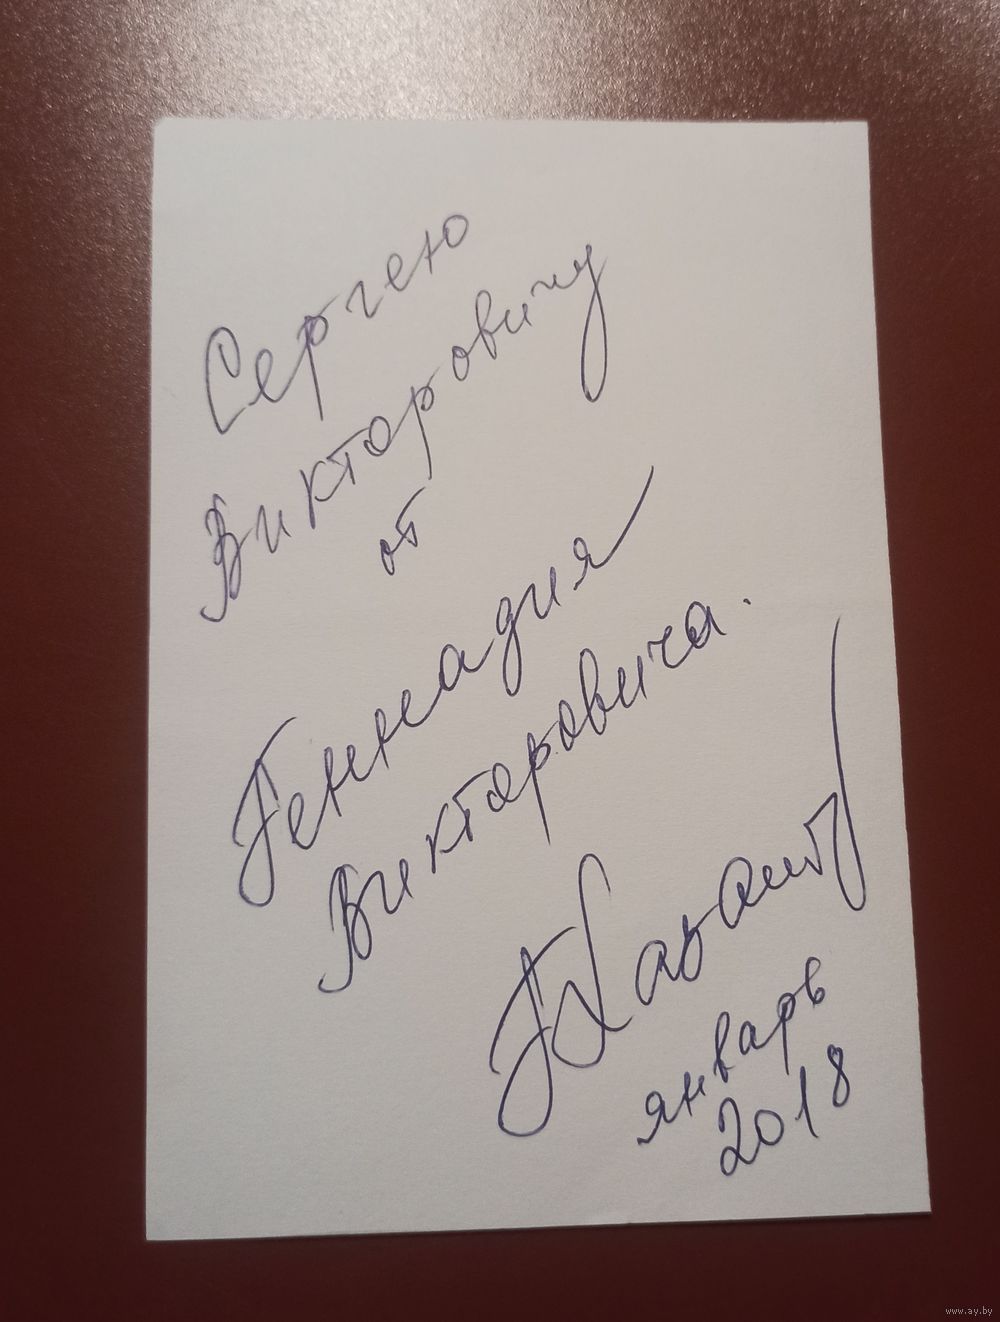 Сергею
Викторовичу
от
Геннадия
Викторовича.
январь
2018
www.ay.by